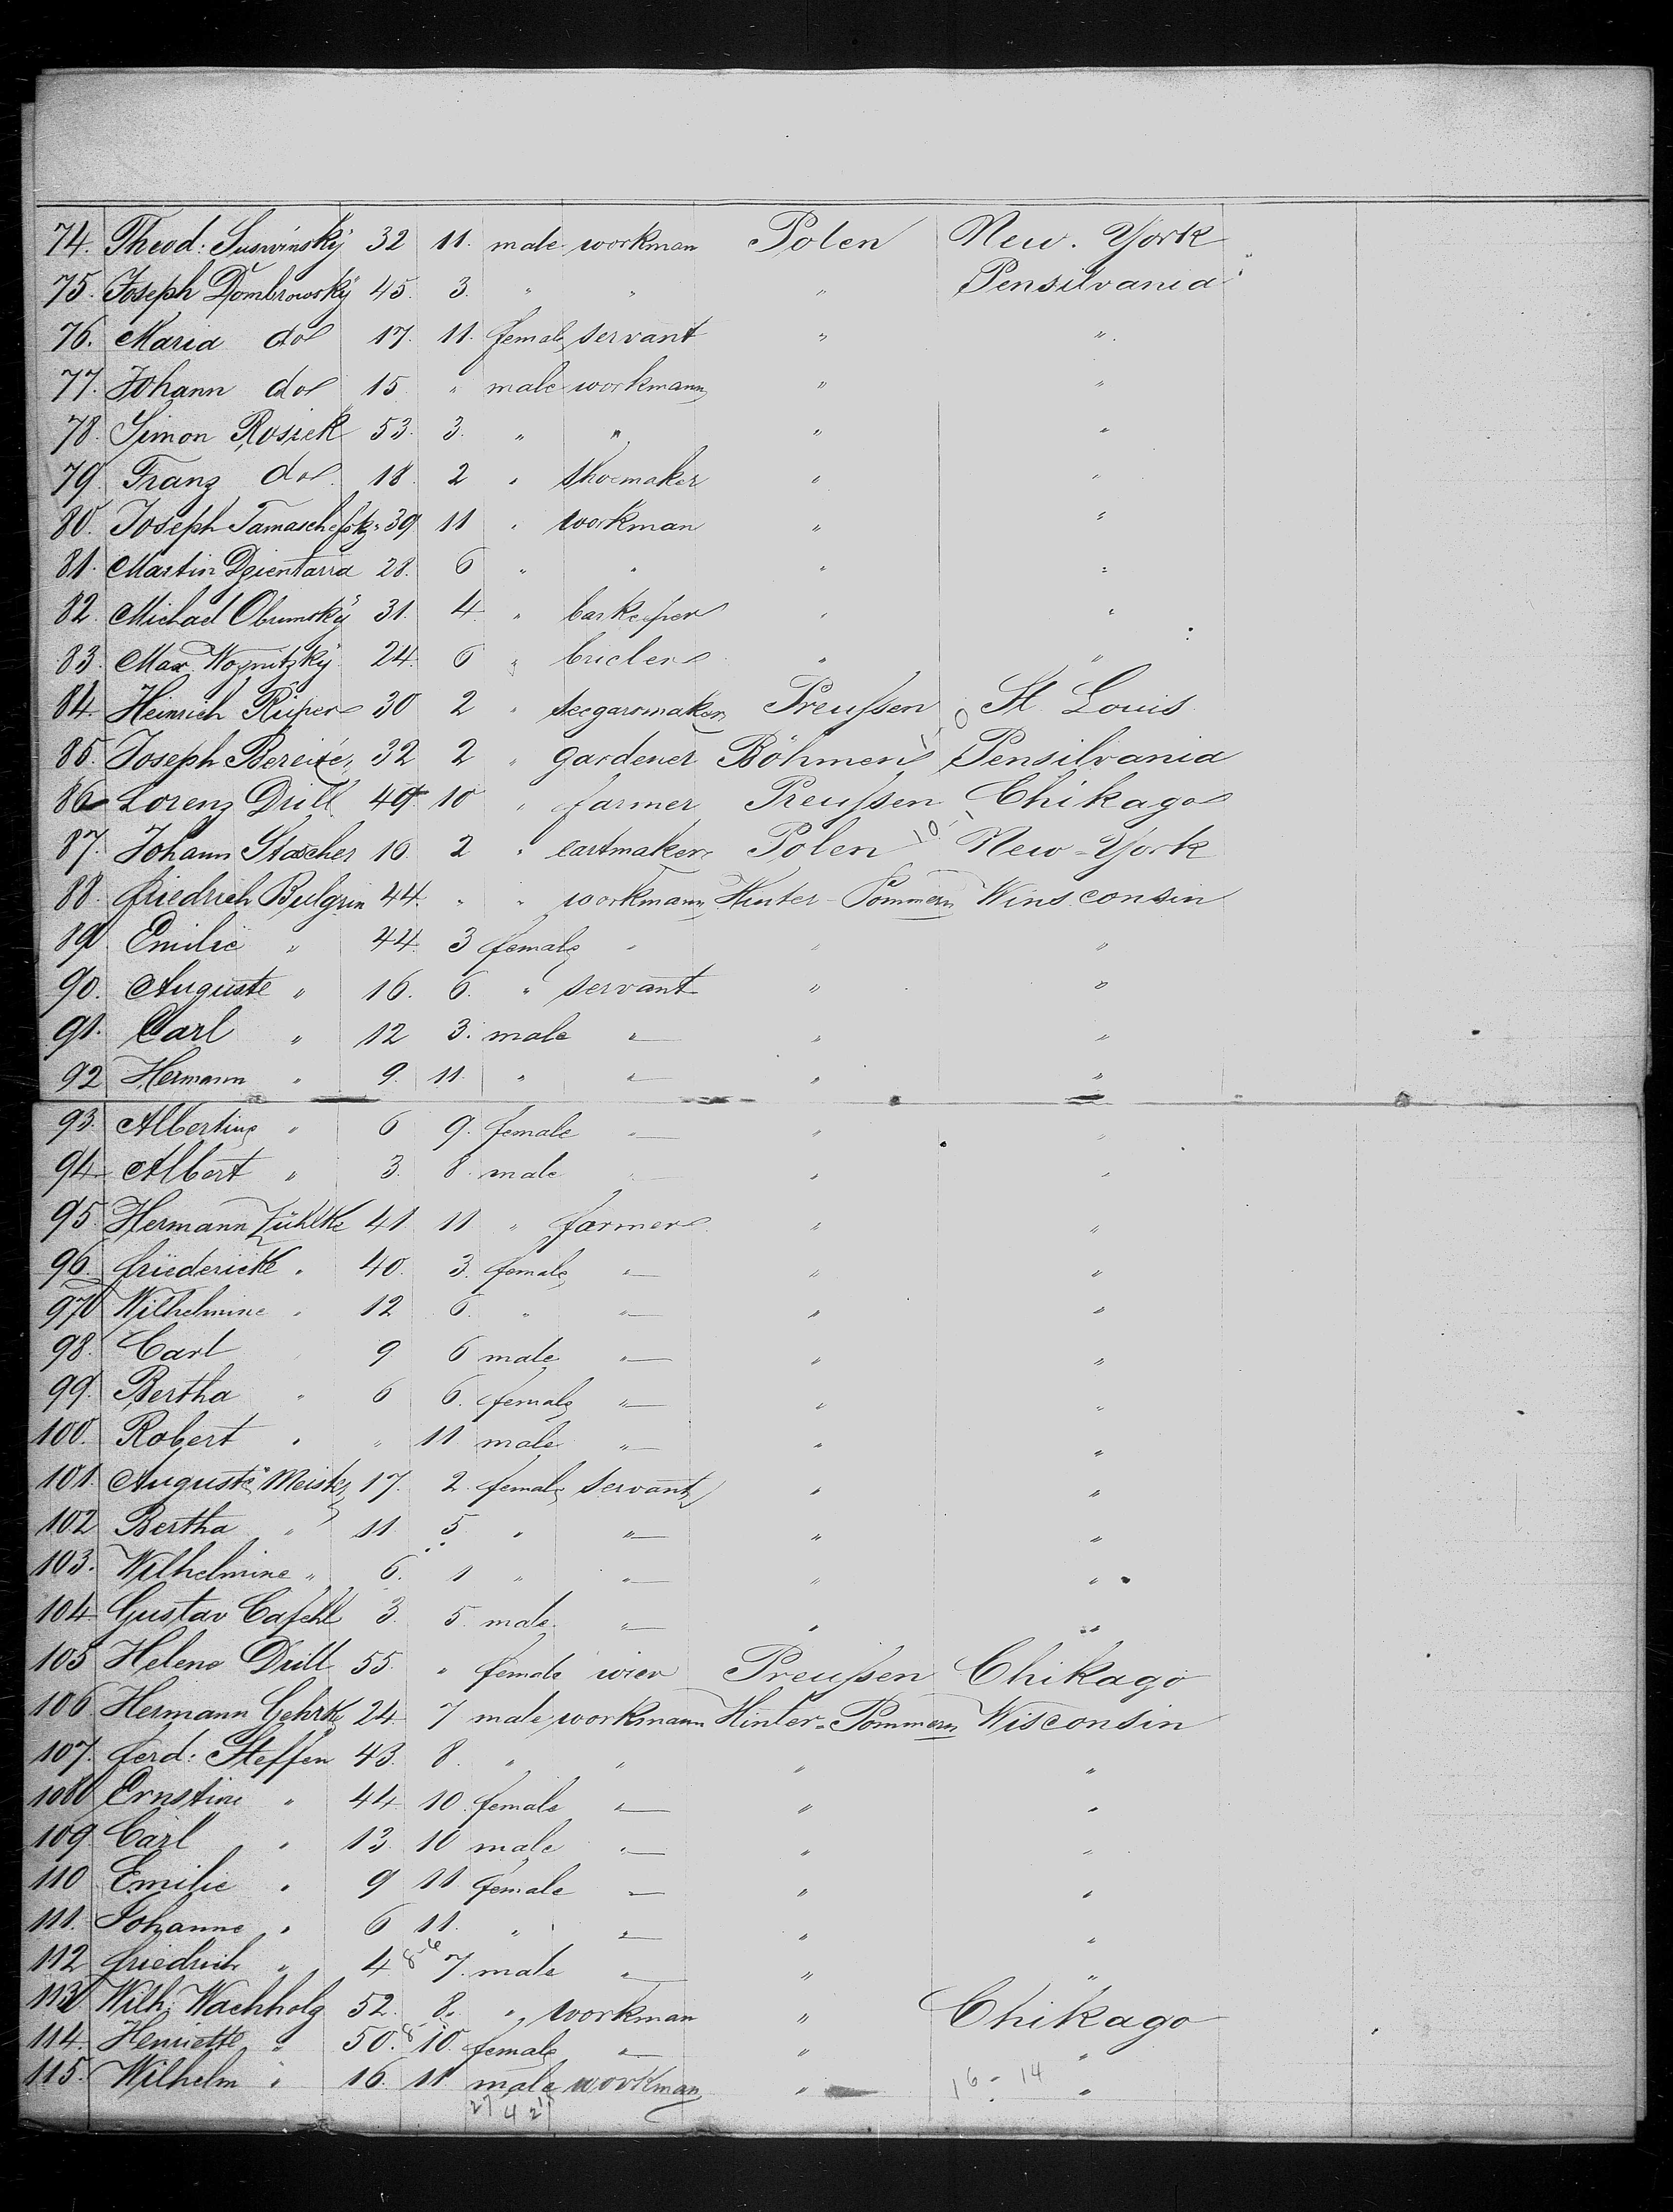 74. Theod: Suswinsky 32 11. male workman Polen New. York
75. Joseph Dombrowsky 45. 3. " " " Pensilvania
76. Maria do 17. 11. female servant " "
77. Johann do 15. " male workmann " "
78. Simon Rosiek 53. 3. " " " "
79. Franz do 18. 2 " shoemaker " "
80. Joseph 39 11 " workman " "
81. Martin 28. 6 " " " "
82. Michael 31. 4 " barkeeper " "
83. Max. Wognitzky 24. 6 " " "
84. Heinrich Rüper 30 2 " seegarsmaker Preußen St. Louis
85. Joseph 32 2 " gardener Böhmen Pensilvania
86 Lorenz Drill 49 10 " farmer Preußen Chikago
87. Johann 2 " Polen New-York
88. friedrich Bulgrin 44. " " workmann Hinter-Pommern Winsconsin
89 Emilie " 44. 3 female " " "
90. Auguste " 16. 6. " servant " "
91. Carl " 12 3. male " " "
92 Hermann " 9. 11. " " " "
93. Albertine " 6 9. female " " "
94 Albert " 3. 8. male " " "
95. Hermann Zühlke 41. 11 " farmer " "
96. friedericke " 40. 3. female " " "
97 Wilhelmine " 12 6. " " " "
98. Carl " 9 6 male " " "
99. Bertha " 6 6. female " " "
100. Robert " " 11 male " " "
101. Auguste Meister 17. 2. female servant " "
102 Bertha " 11. 5 " " " "
103. Wilhelmine " 6. 1 " " " "
104 Gustav 3. 5. male " " "
105 Helene Drill 55. " female Preußen Chikago
106 Hermann Gehrke 24. 7 male workmann Hinter-Pommern Wisconsin
107. ferd: Steffen 43. 8. " " " "
108 Ernstine " 44. 10. female " " "
109. Carl " 13. 10 male " " "
110 Emilie " 9 11. female " " "
111. Johanne " 6 11. " " " "
112 friedrich " 4. 7. male " " "
113 Wilh. Wachholz 52. 8. " workman " Chikago
114. Henriette " 50. 10. female " " "
115. Wilhelm " 16. 11. male workman " "
16 - 14
27 4 21